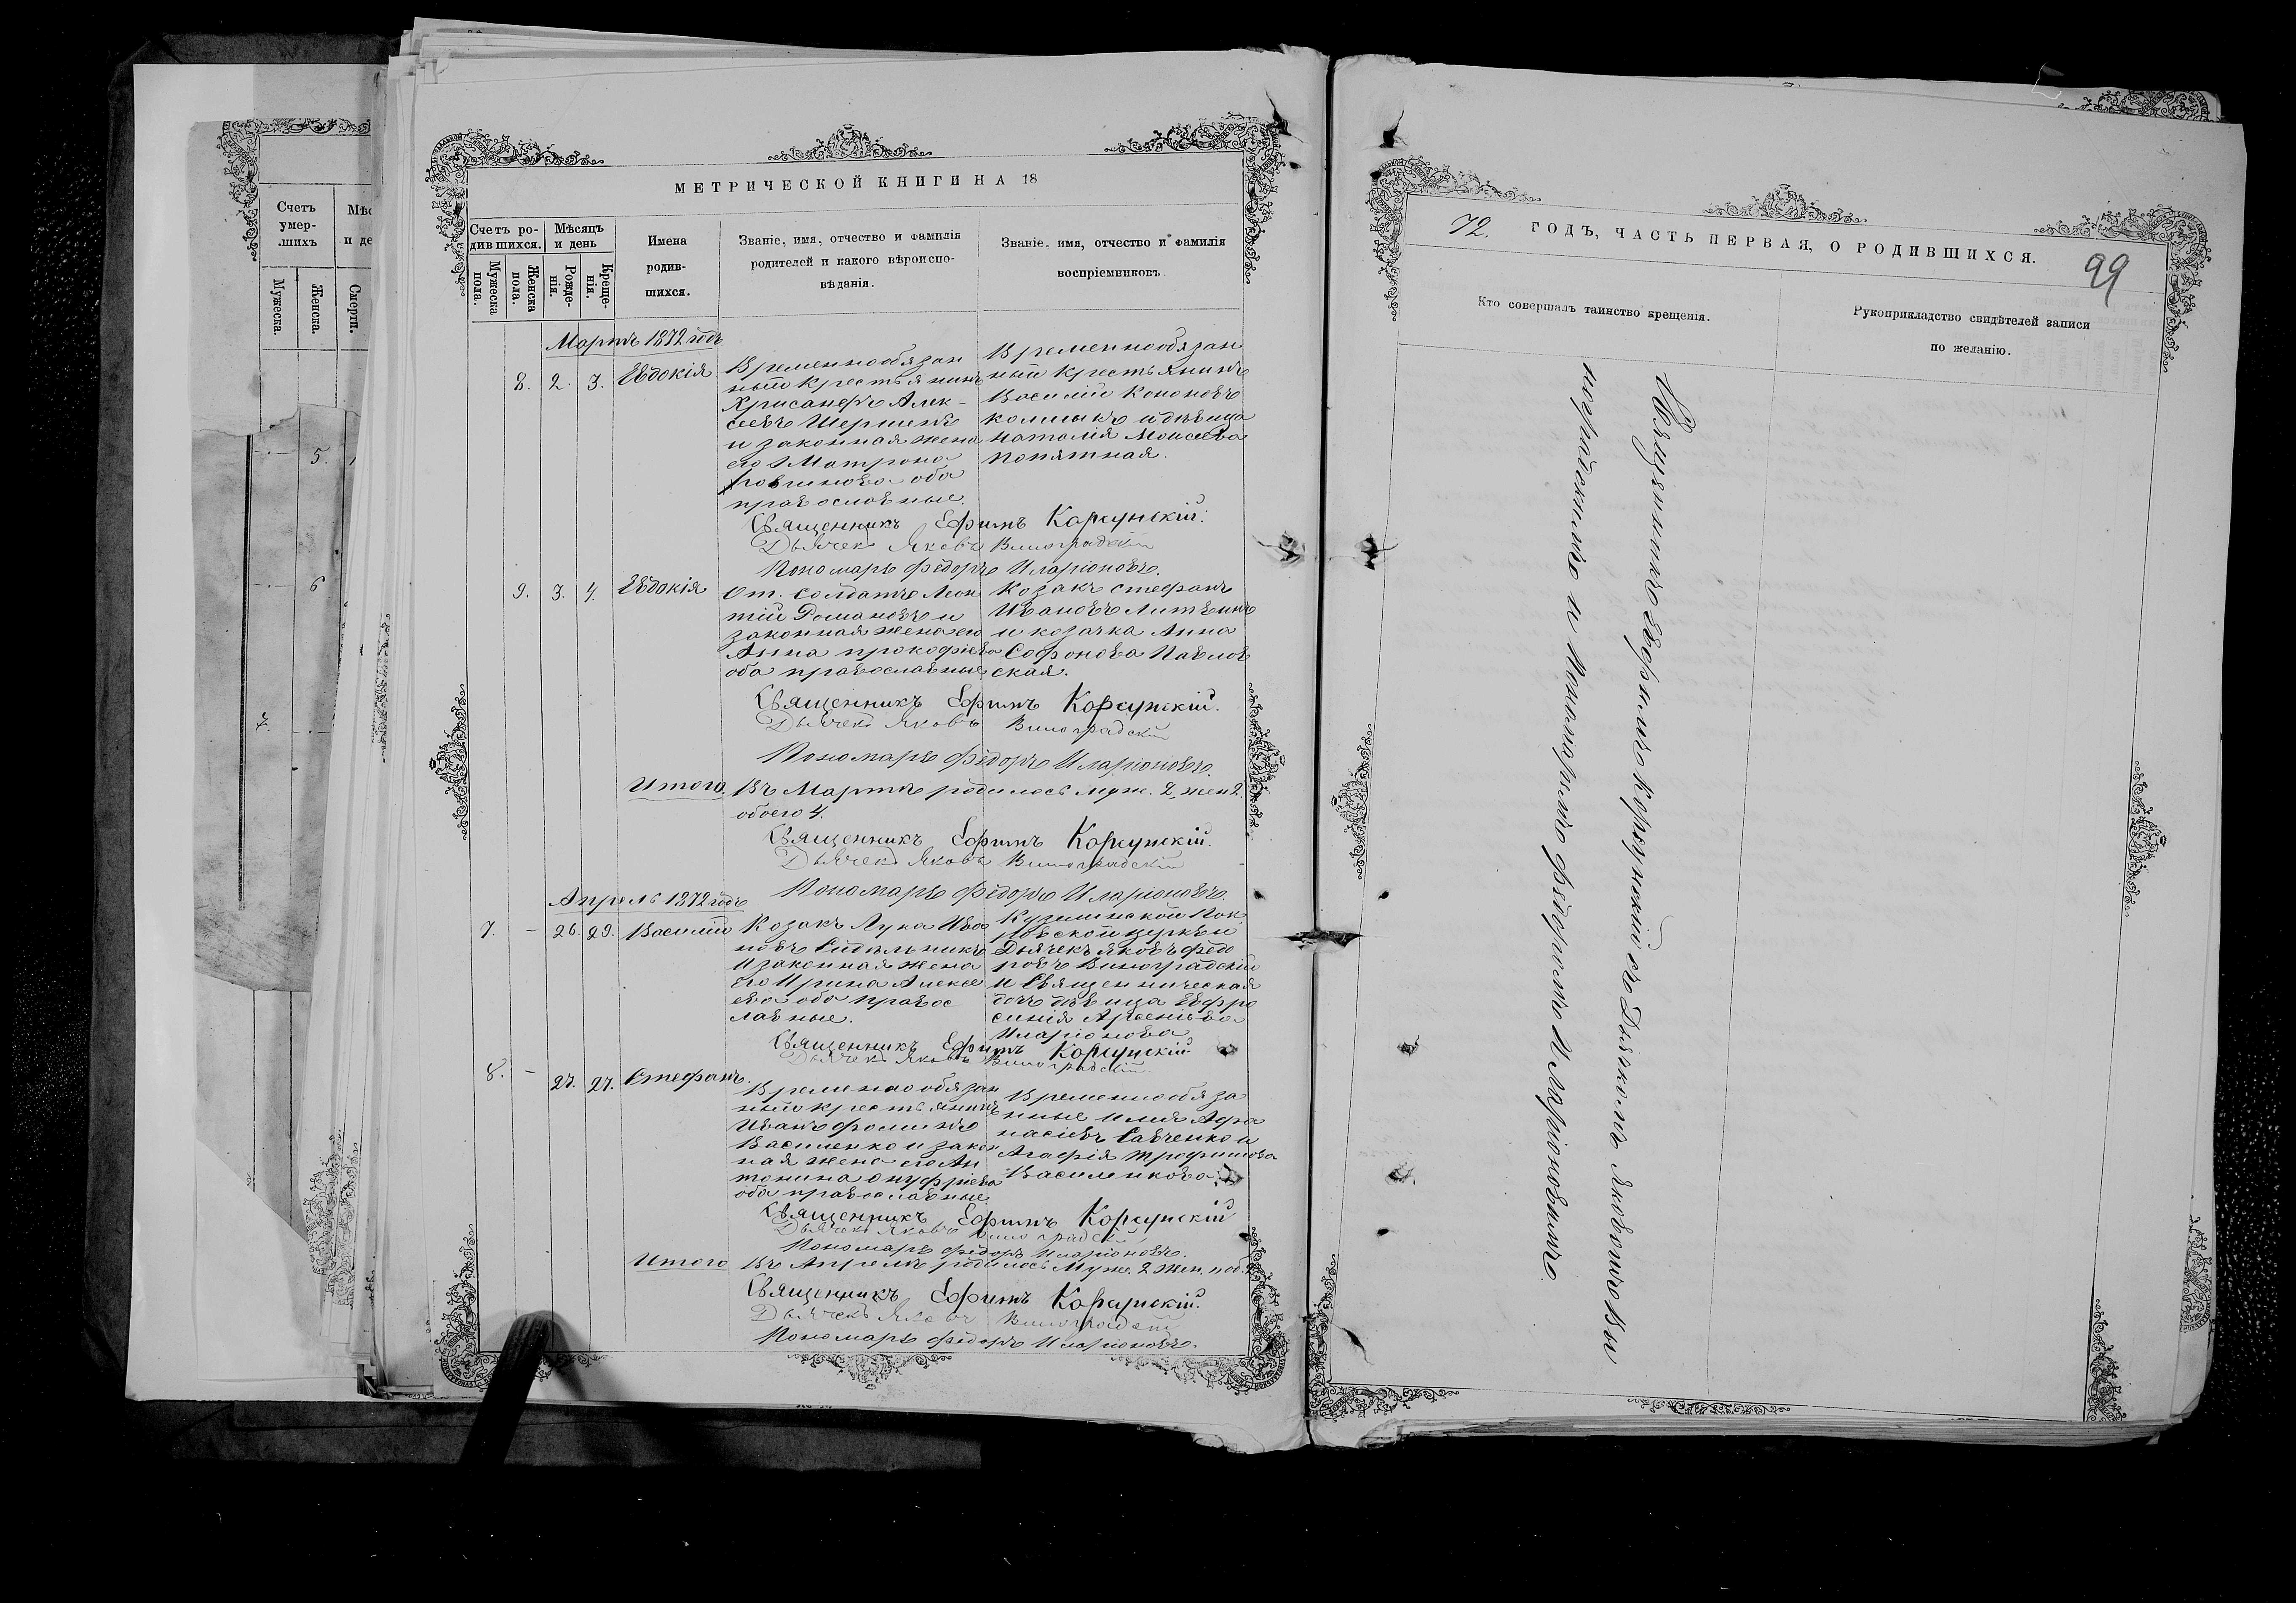 Счетъ умер-
шихъ
Мужеска.
Женска.
Смерти.
5.
6
7.
МЕТРИЧЕСКОЙ КНИГИ НА 18
Счетъ ро-
дившихся.
Мѣсяцъ
и день
Мужеска пола.
Женска пола.
Рожде-
нія.
Креще-
нія.
Имена
родив-
шихся.
Званіе, имя, отчество и фамилія
родителей и какого вѣроиспо-
вѣданія.
Званіе, имя, отчество и фамилія
воспріемниковъ
Мартъ 1872 годъ
8. 2. 3. Евдокія
Временнообязан
ный крестьянинъ
Хрисанфъ Алек-
сеевъ Шершинъ
и законная жена
его Матрона
Логвинова оба
православные.
Временнообязан
ный крестьянинъ
Василій Кононовъ
колмыкъ и дѣвица
Наталія Моисеева
Попятная.
Священникъ Ефимъ Корсунскій.
Дьячекъ Яковъ Виноградскій
Пономарь Федоръ Иларіоновъ.
9. 3. 4. Евдокія
От. солдатъ Леон
тій Романовъ и
законная жена его
Анна Прокофіева
оба православные
Козакъ Стефанъ
Ивановъ Литвинъ
и козачка Анна
Софонова Павлов
ская.
Священникъ Ефимъ Корсунскій.
Дьячекъ Яковъ Виноградскій
Пономарь Федоръ Иларіоновъ.
Итого. Въ Мартѣ родилось муж. 2, жен 2.
обоего 4.
Священникъ Ефимъ Корсунскій.
Дьячекъ Яковъ Виноградскій
Пономарь Федоръ Иларіоновъ.
Апрель 1872 годъ
7. - 26. 29. Василій
Козакъ Лука Ива
новъ Сидѣльникъ
и законная жена
его Ирина Алексе
ева оба правос
лавные.
ловской церкви
Дьячекъ Яковъ Федо
ровъ Виноградскій
и Священническая
дочь дѣвица Евфро
синія Арсеніева
Иларіонова
Священникъ Ефимъ Корсунскій
Дьячекъ Яковъ Виноградскій
8. - 27. 27. Стефанъ.
Временнообязан
ный крестьянинъ
Иванъ Фоминъ
Василенко и закон
ная жена его Ан
тонина Онуфріева
оба православные
Временнообяза
нные Илія Афа
насіевъ Савченко и
Агафія Трофимова
Василенкова.
Священникъ Ефимъ Корсунскій
Дьячекъ Яковъ Виноградскій
Пономарь Федоръ Иларіоновъ.
Итого Въ Апрелѣ родилось Муж. 2 жен. н об. 2.
Священникъ Ефимъ Корсунскій.
Дьячекъ Яковъ Виноградскій
Пономарь Федоръ Иларіоновъ.
72. ГОДЪ, ЧАСТЬ ПЕРВАЯ, О РОДИВШИХСЯ.
99
Кто совершалъ таинство крещенія.
Рукоприкладство свидѣтелей записи
по желанію.
Священникъ Ефимъ Корсунскій съ Дьячкомъ Яковомъ Ви
ноградскимъ и Пономаремъ Федоромъ Иларіоновымъ